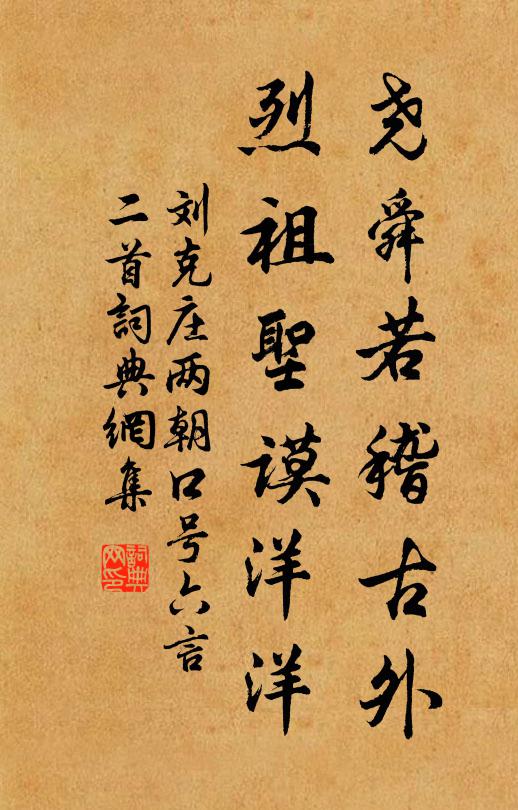 尧舜若稽古外
烈祖聖谟洋洋
刘克庄两朝口号六言
二首詞典網集
詞典
网印